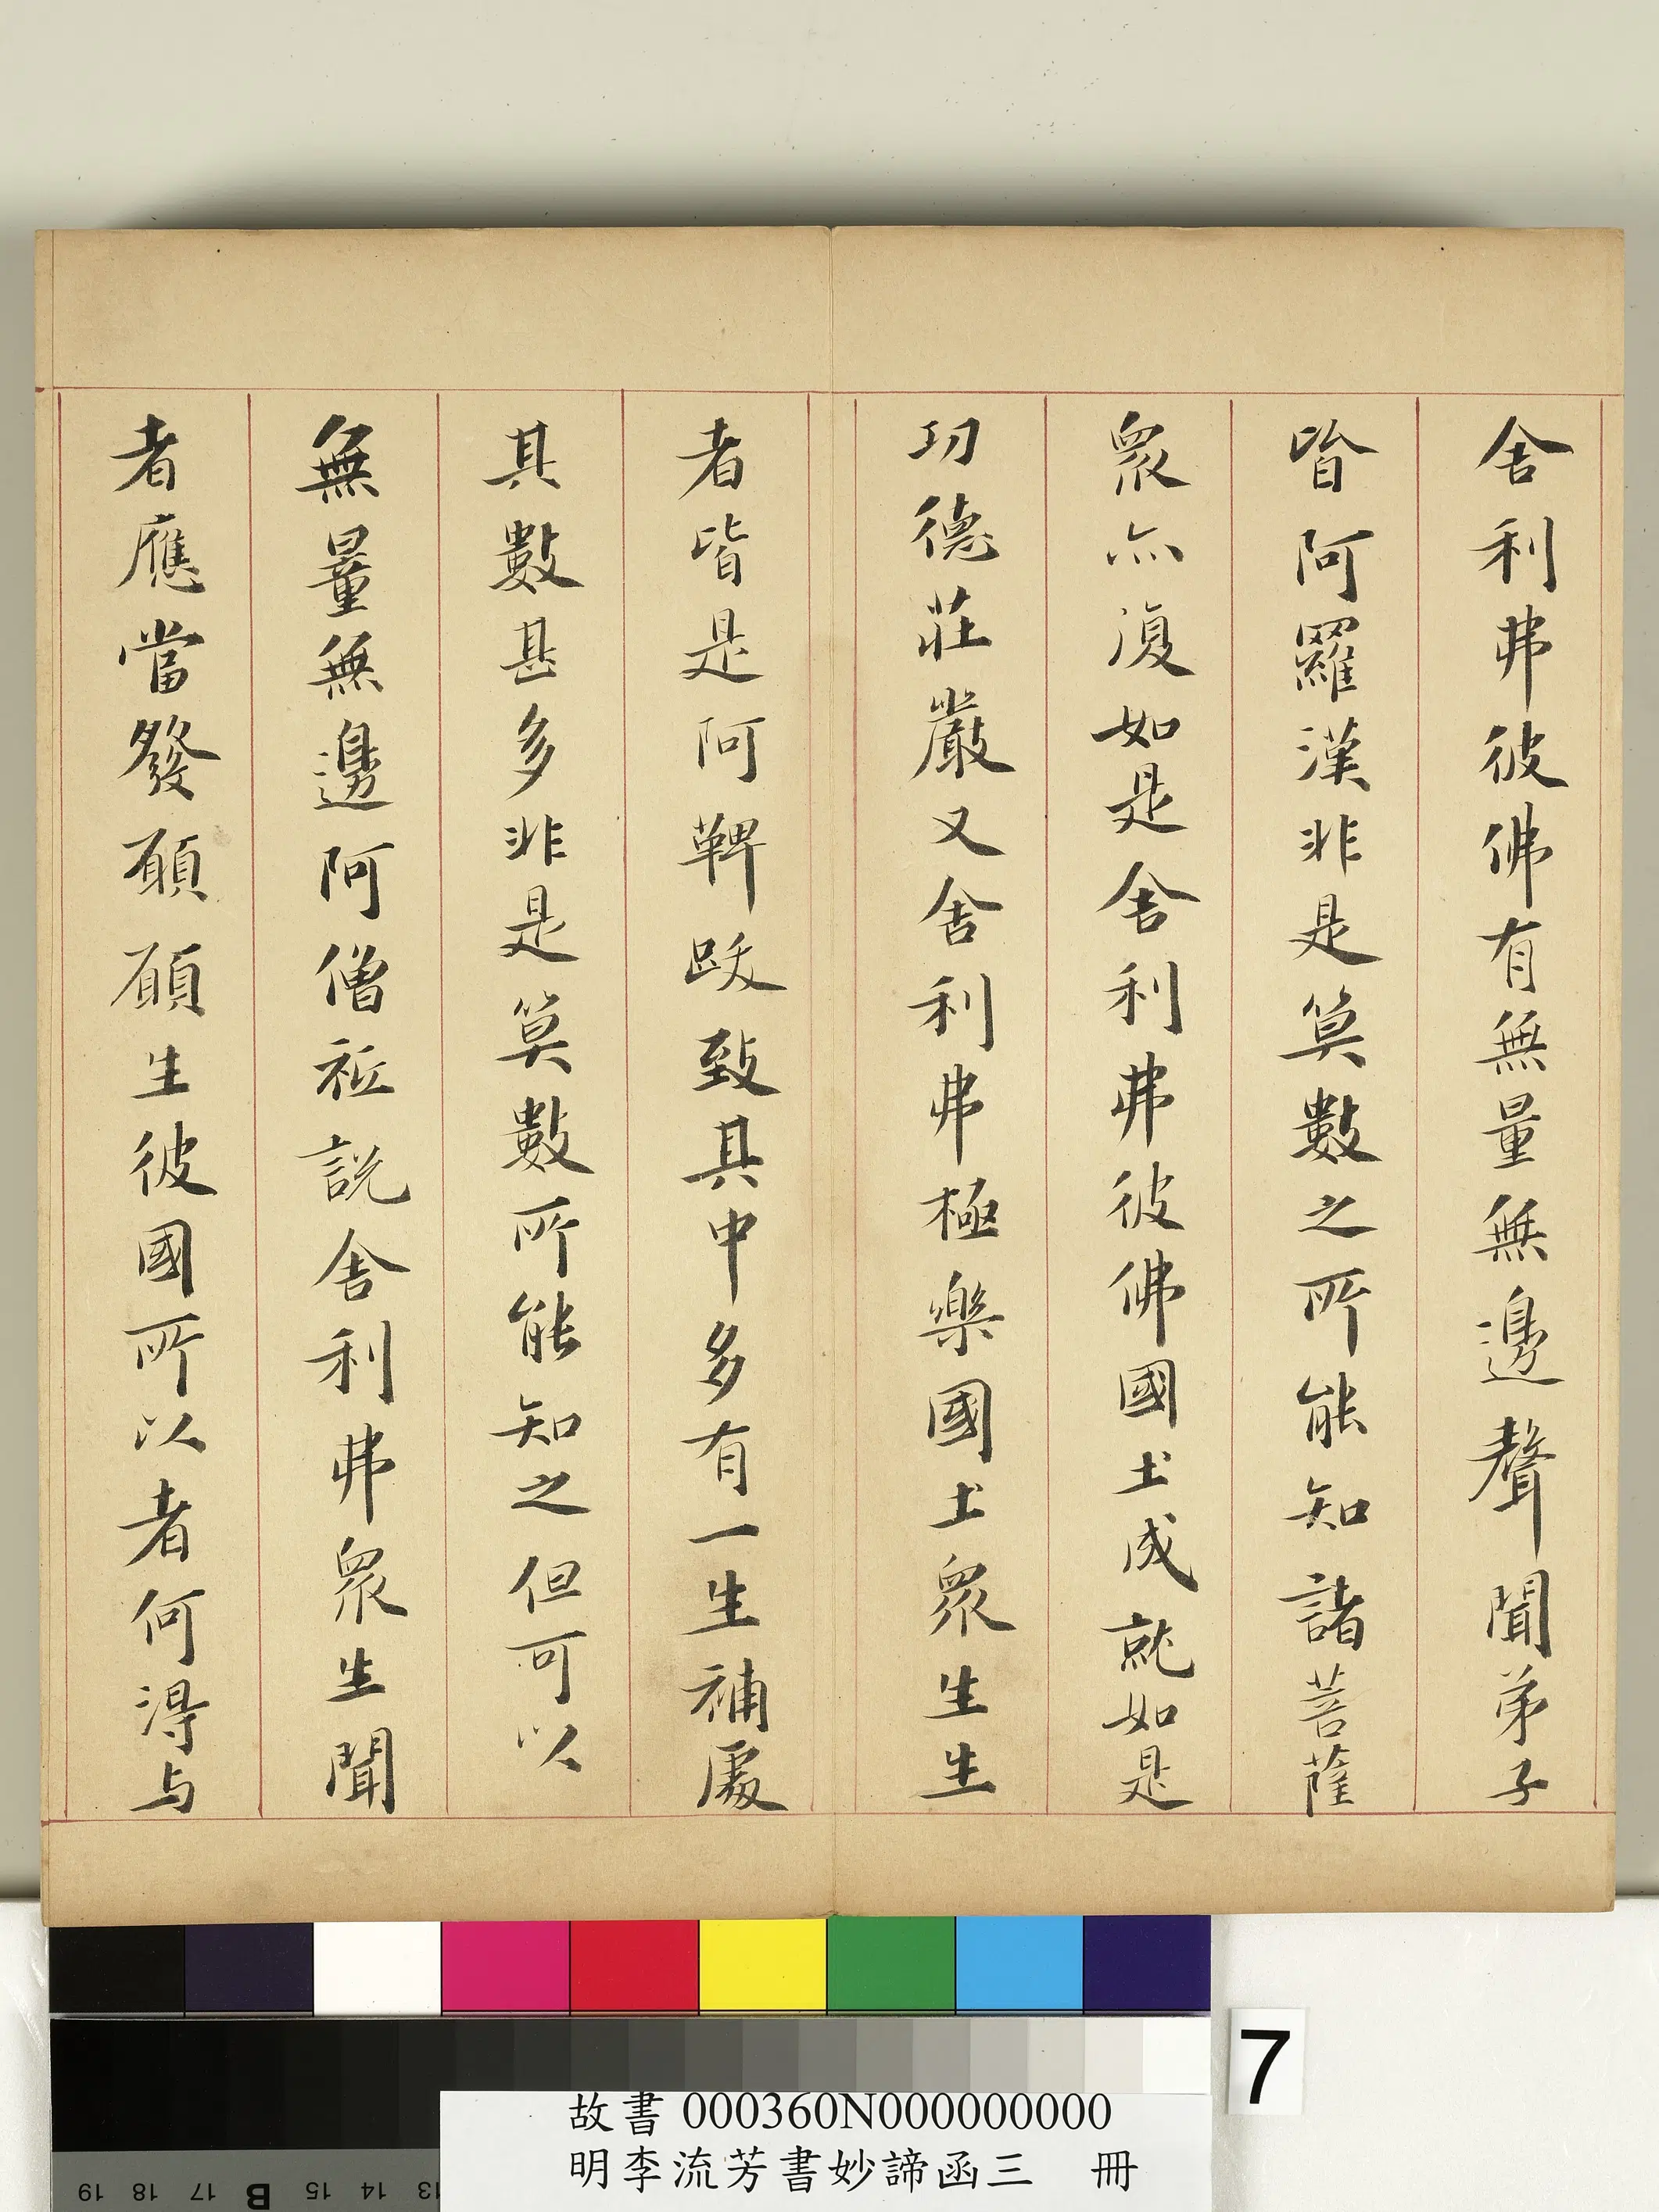 舍利弗彼佛有無量無邊聲聞弟子
皆阿羅漢非是算數之所能知諸菩薩
衆亦復如是舍利弗彼佛國土成就如是
功德莊嚴又舍利弗極樂國土衆生生
者皆是阿鞞跋致其中多有一生補處
其數甚多非是算數所能知之但可以
無量無邊阿僧祇說舍利弗衆生聞
者應當發願願生彼國所以者何得与
7
故書 000360N000000000
明李流芳書妙諦函三 冊
19 18 17 B 15 14 13